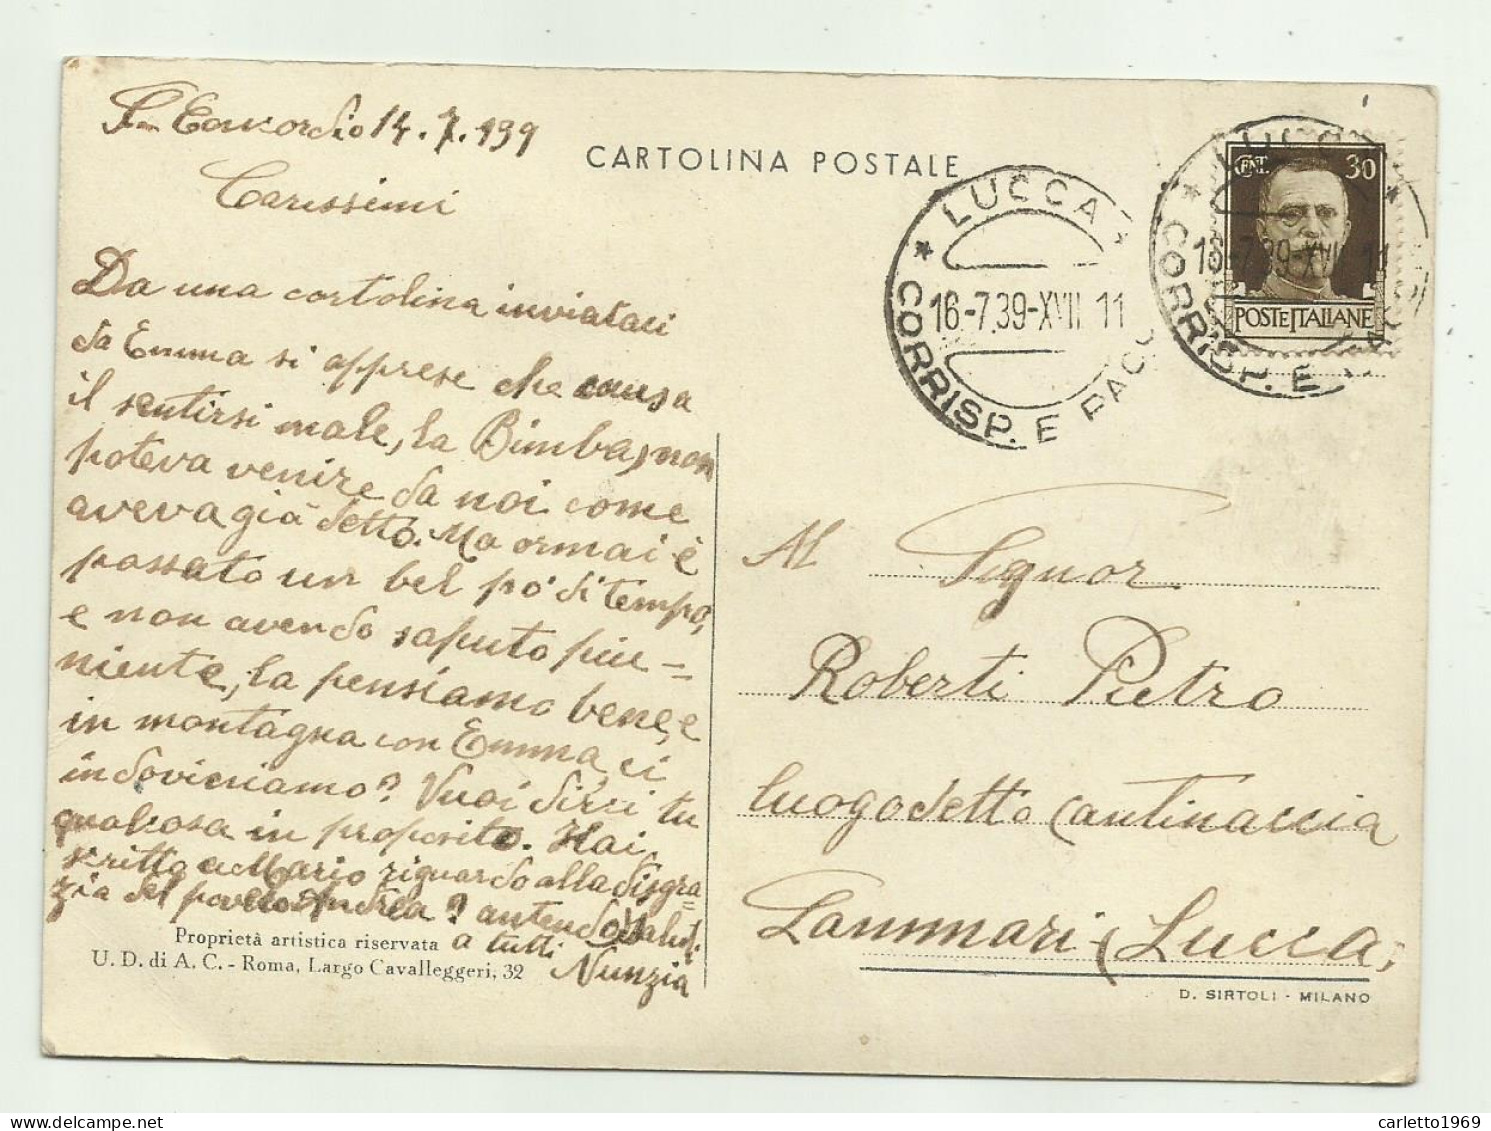 S. Concordio 14.7.939
Carissimi
Da una cartolina inviataci
da Emma si apprese che causa
il sentirsi male, la Bimba, non
poteva venire da noi come
aveva già detto. Ma ormai è
passato un bel pò di tempo,
e non avendo saputo più =
niente, la pensiamo bene, e
in montagna con Emma, ci
indoviniamo? Vuoi dirci tu
qualcosa in proposito. Hai
scritto a Mario riguardo alla disgra=
zia del povero Andrea? Saluti
a tutti
Nunzia
Proprietà artistica riservata
U. D. di A. C. - Roma, Largo Cavalleggeri, 32
CARTOLINA POSTALE
LUCCA
16-7.39-XVII 11
CORRISP. E PACC
CENT. 30
POSTE ITALIANE
LUCCA
16-7.39-XVII 11
CORRISP. E PACC
Al Signor
Roberti Pietro
luogodetto Cantinaccia
Lammari - (Lucca)
D. SIRTOLI - MILANO
carletto1969